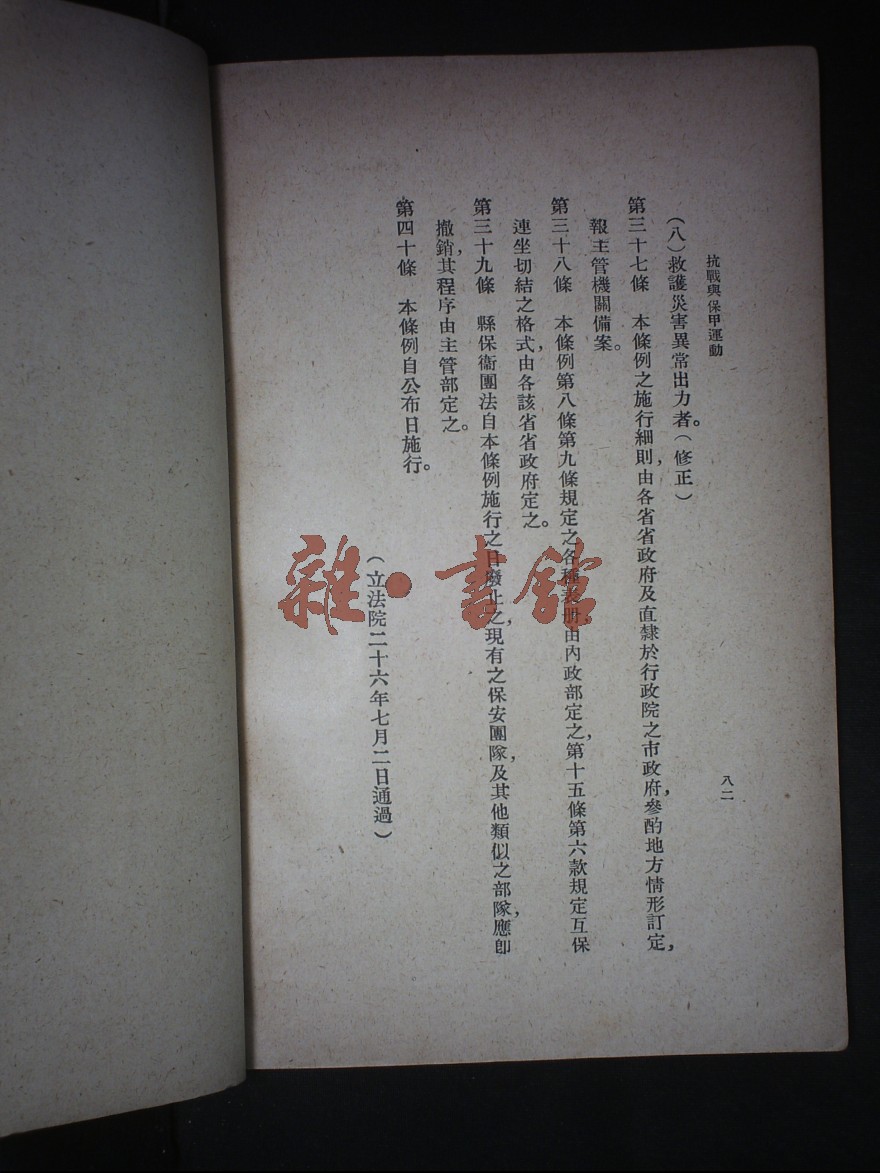 抗戰與保甲運動
八二
(八)救護災害異常出力者。(修正)
第三十七條　本條例之施行細則,由各省省政府及直隸於行政院之市政府,參酌地方情形訂定,
報主管機關備案。
第三十八條　本條例第八條第九條規定之各種表册,由內政部定之,第十五條第六款規定互保
連坐切結之格式,由各該省省政府定之。
第三十九條　縣保衞團法自本條例施行之日廢止之,現有之保安團隊,及其他類似之部隊,應卽
撤銷,其程序由主管部定之。
第四十條　本條例自公布日施行。
(立法院二十六年七月二日通過)
雜·書館